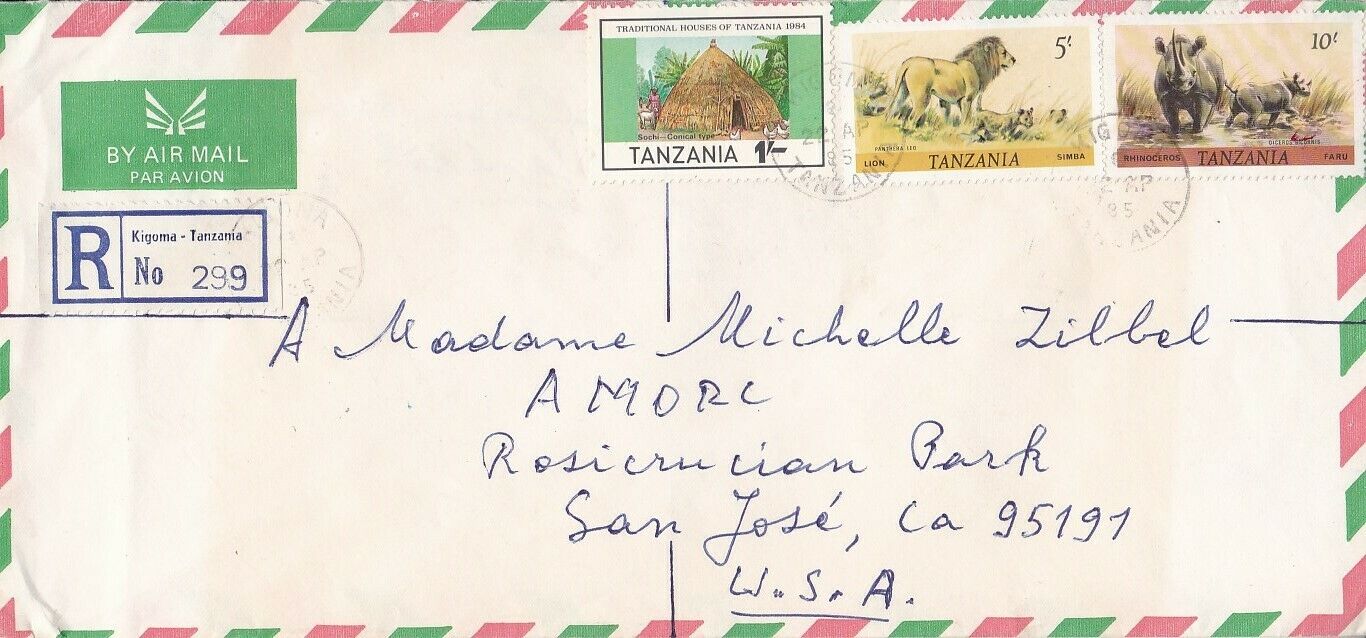 TRADITIONAL HOUSES OF TANZANIA 1984
Sochi-Conical type
TANZANIA 1/-
5/-
PANTHERA LEO
LION TANZANIA SIMBA
10/-
DICEROS BICORNIS
RHINOCEROS TANZANIA FARU
TANZANIA
85
BY AIR MAIL
PAR AVION
R
Kigoma - Tanzania
No 299
A Madame Michelle Zilbel
AMORC
Rosicrucian Park
San José, Ca 95191
U.S.A.